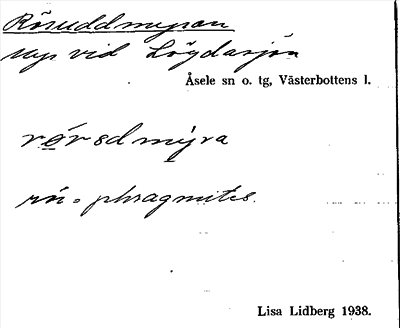 Rösuddmyran
myr vid Lögdasjön
Åsele sn o. tg, Västerbottens l.
rörsdmyra
rö = phragmites.
Lisa Lidberg 1938.